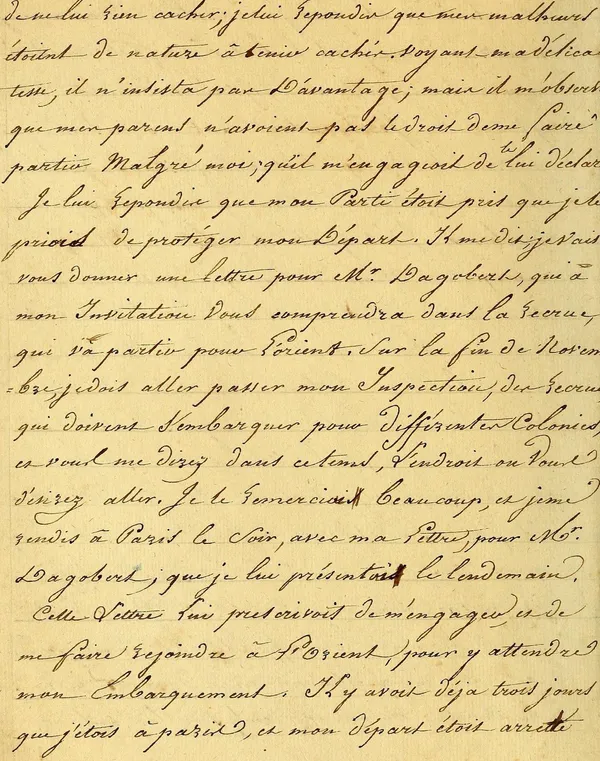 de ne lui rien cacher; je lui repondis que mes malheurs
étoient de nature à tenir cachés. Voyant ma délica
tesse, il n'insista pas D'avantage; mais il m'observ
que mes parens n'avoient pas le droit de me faire
partir Malgré moi; qu'il m'engagioit de te lui déclar
Je lui repondis que mon Parti étoit pris que je le
priois de protéger mon Départ. Il me dit; je vais
vous donner une lettre pour Mr. Dagobert, qui à
mon Invitation vous comprendra dans la recrue,
qui va partir pour Lorient. Sur la fin de Novem
=bre, je dois aller passer mon Inspection, des recrue
qui doivent s'embarquer pour différentes Colonies,
et vous me direz dans ce tems, l'endroit ou vous
désirez aller. Je le remerciai beaucoup, et je me
rendis à Paris le soir, avec ma Lettre, pour Mr.
Dagobert; que je lui présentois le lendemain.
Cette Lettre lui prescrivoit de m'engager, et de
me faire rejoindre à l'Orient, pour y attendre
mon Embarquement. Il y avoit déja trois jours
que j'étois à paris, et mon départ étoit arretté